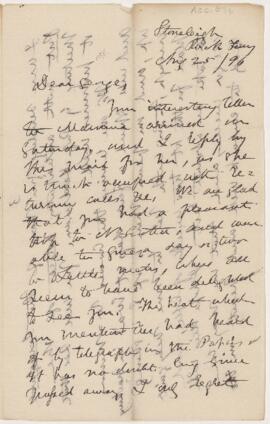 Stoneleigh
Rock Ferry
Aug 25/96
Dear George,
Your interesting letter
to Mamma arrived on
Saturday, and I reply by
this mail for her, as she
is much occupied with
calls &c. We are glad
that you had a pleasant
and were
able to spend a day or two
where all
seem to have been delighted
to see you. The heat which
you mention we had heard
of by telegraph in the Papers &
it has no doubt long since
passed away. I only regret